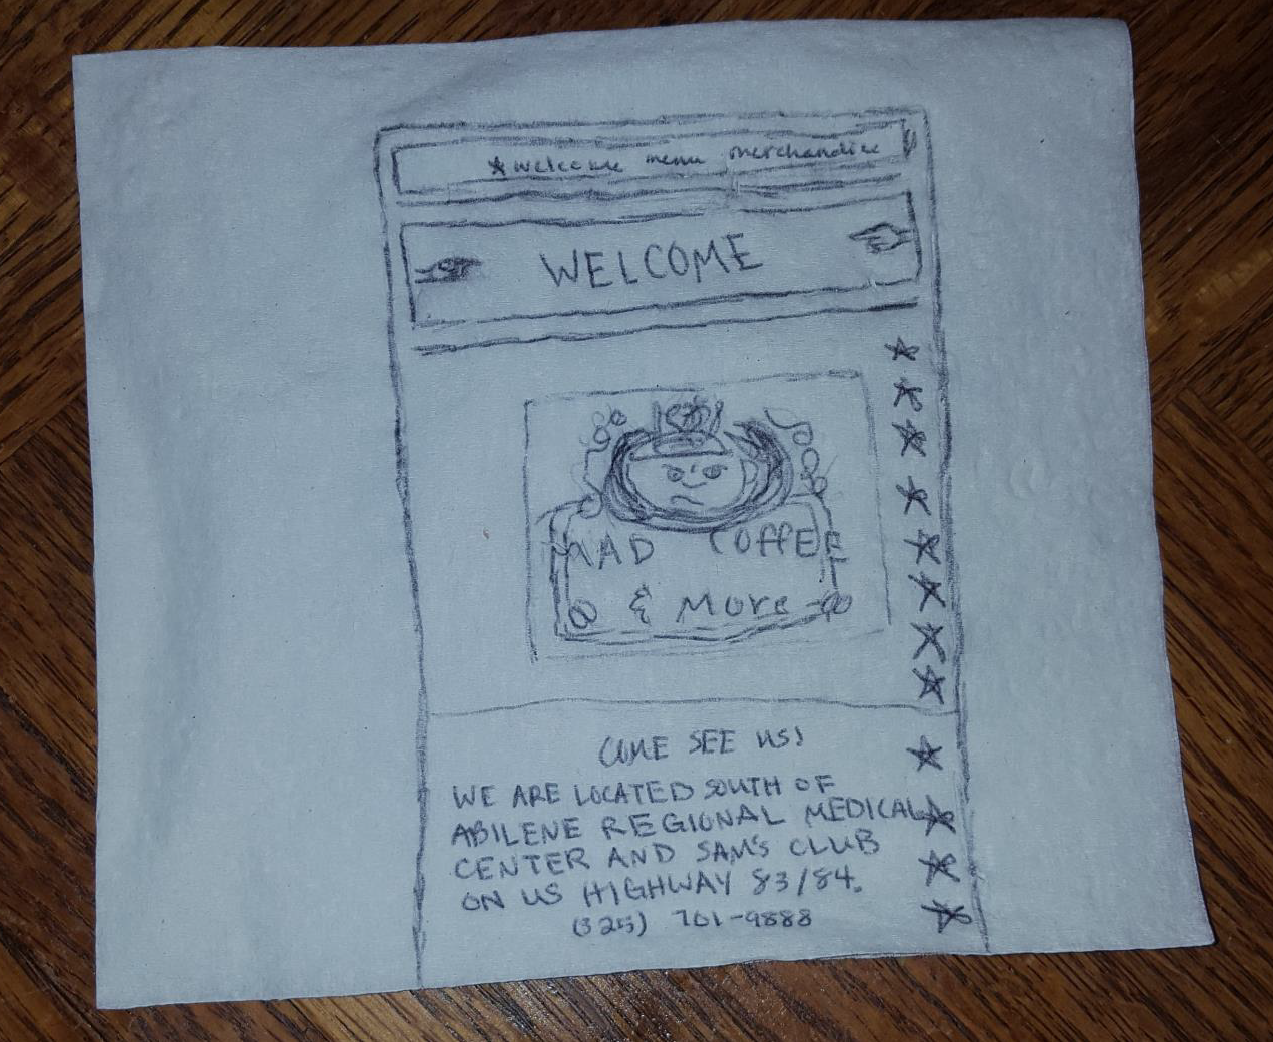 welcome menu merchandise
WELCOME
MAD COFFEE
& MORE
COME SEE US!
WE ARE LOCATED SOUTH OF
ABILENE REGIONAL MEDICAL
CENTER AND SAM'S CLUB
ON US HIGHWAY 83/84.
(325) 701-9888